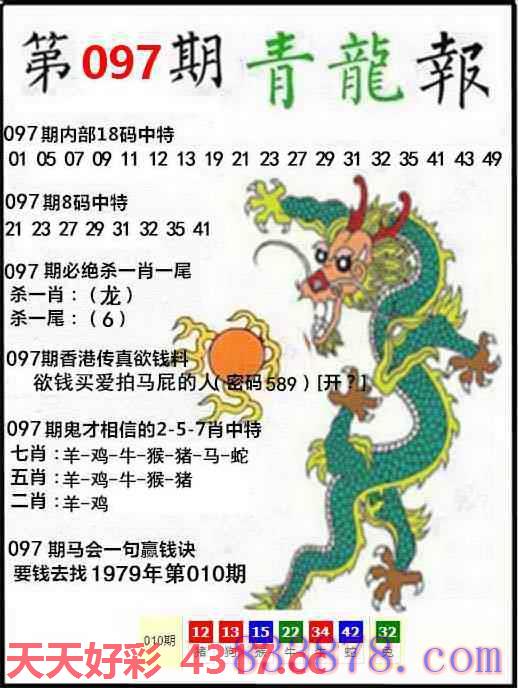 第097期青龍報
097期内部18码中特
01 05 07 09 11 12 13 19 21 23 27 29 31 32 35 41 43 49
097期8码中特
21 23 27 29 31 32 35 41
097期必绝杀一肖一尾
杀一肖：（龙）
杀一尾：（6）
097期香港传真欲钱料
欲钱买爱拍马屁的人（密码589）[开？]
097期鬼才相信的2-5-7肖中特
七肖：羊-鸡-牛-猴-猪-马-蛇
五肖：羊-鸡-牛-猴-猪
二肖：羊-鸡
097期马会一句赢钱诀
要钱去找1979年第010期
010期 12 13 15 22 34 42 32
猪 狗 猴 牛 牛 蛇 兔
天天好彩 4387.cc